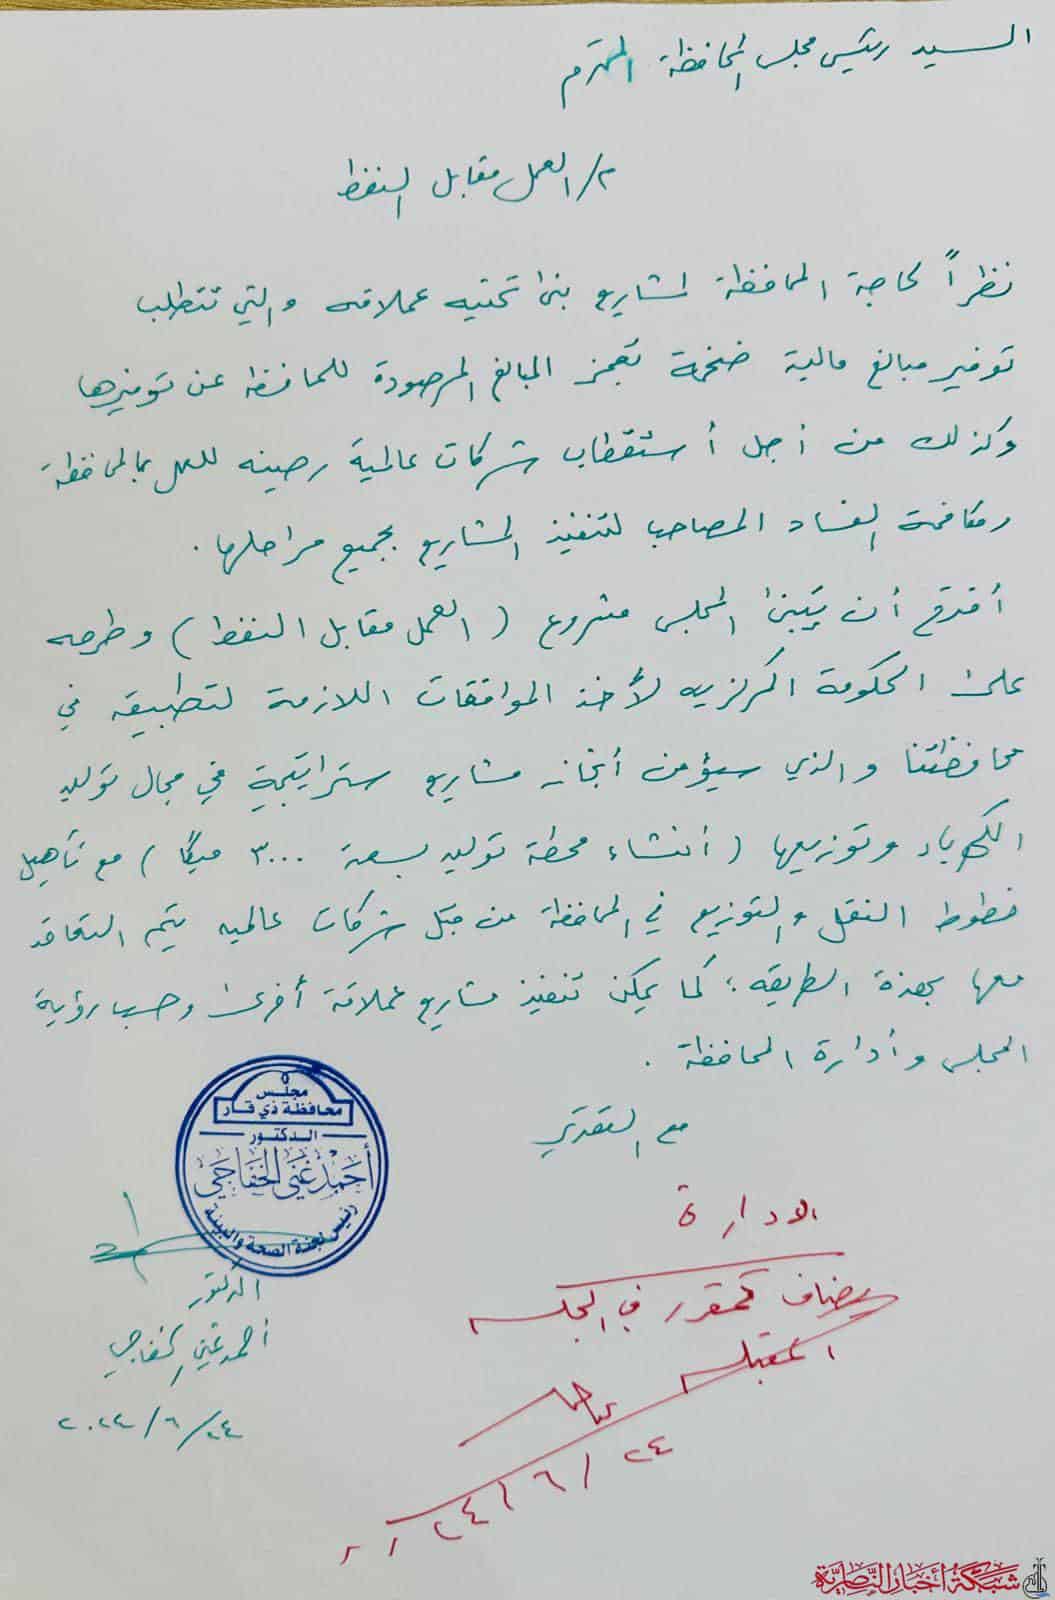 السيد رئيس مجلس المحافظة المحترم
م/ العمل مقابل النفط
نظراً لحاجة المحافظة لمشاريع بنى تحتيه عملاقه والتي تتطلب
توفير مبالغ مالية ضخمة تعجز المبالغ المرصودة للمحافظة عن توفيرها
وكذلك من أجل أستقطاب شركات عالمية رصينه للعمل بالمحافظة
ومكافحة الفساد المصاحب لتنفيذ المشاريع بجميع مراحلها .
أقترح أن يتبنى المجلس مشروع ( العمل مقابل النفط ) وطرحه
على الحكومة المركزيه لأخذ الموافقات اللازمة لتطبيقه في
محافظتنا والذي سيؤمن أنجاز مشاريع ستراتيجية في مجال توليد
الكهرباء وتوزيعها ( أنشاء محطة توليد بسعة ٣٠٠٠ ميكا ) مع تأهيل
خطوط النقل والتوزيع في المحافظة من قبل شركات عالميه يتم التعاقد
معها بهذة الطريقه ؛ كما يمكن تنفيذ مشاريع عملاقة أخرى وحسب رؤية
المجلس وأدارة المحافظة .
مع التقدير
مجلس
محافظة ذي قار
الدكتور
أحمد غني الخفاجي
رئيس لجنة الصحة والبيئة
الدكتور
أحمد غني الخفاجي
٢٠٢٤/٦/٢٤
الادارة
يضاف كمقرر في الجلسه
المقبله
٢٤/٦/٢٤
شبكة أخبار الناصرية